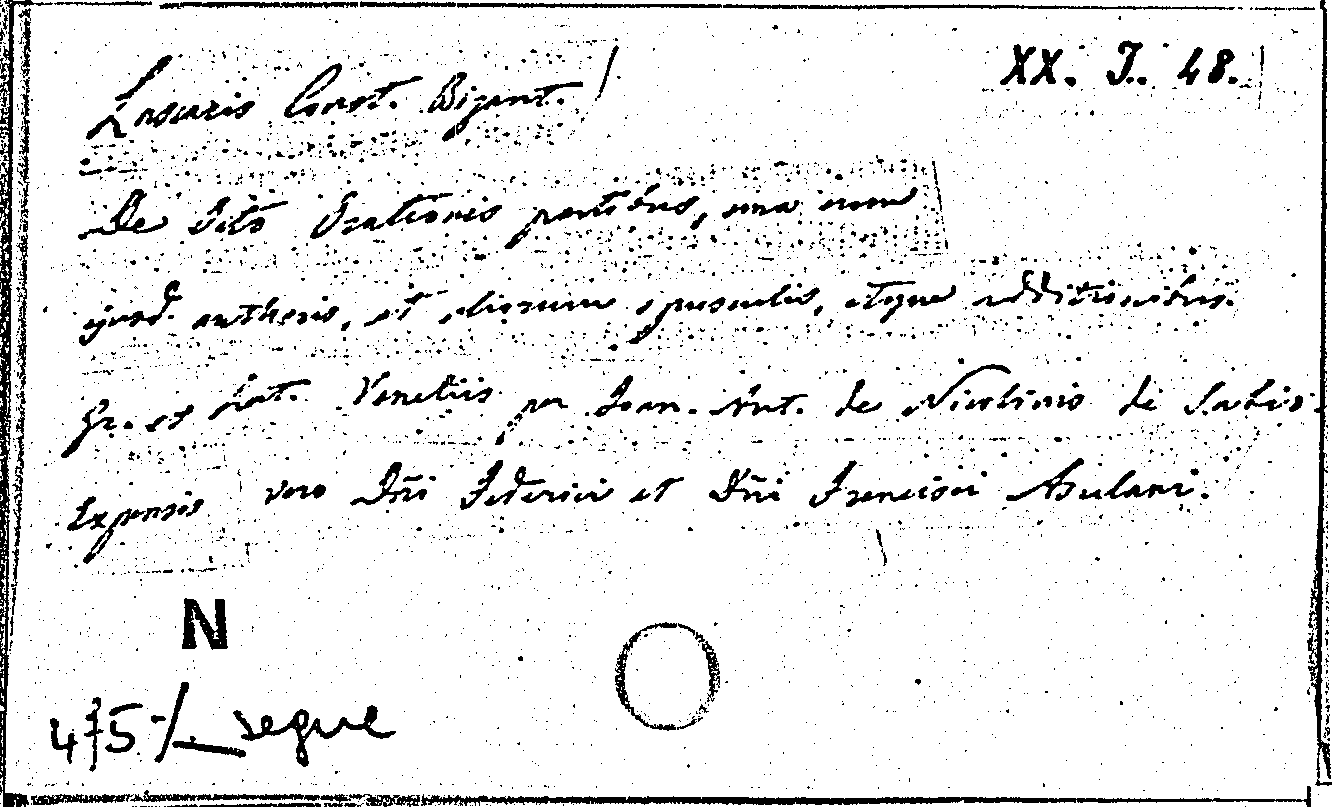 Lascaris Const. Bizant.
XX. I. 48.
De Octo Orationis partibus, una cum
ejusd. autheris, et aliorum opusculis, atque additionibus.
Gr. et Lat. Venetiis per Joan. Ant. de Nicolinis de Sabio.
Expensis vero Dñi Federici et Dñi Francisci Asulani.
N
segue